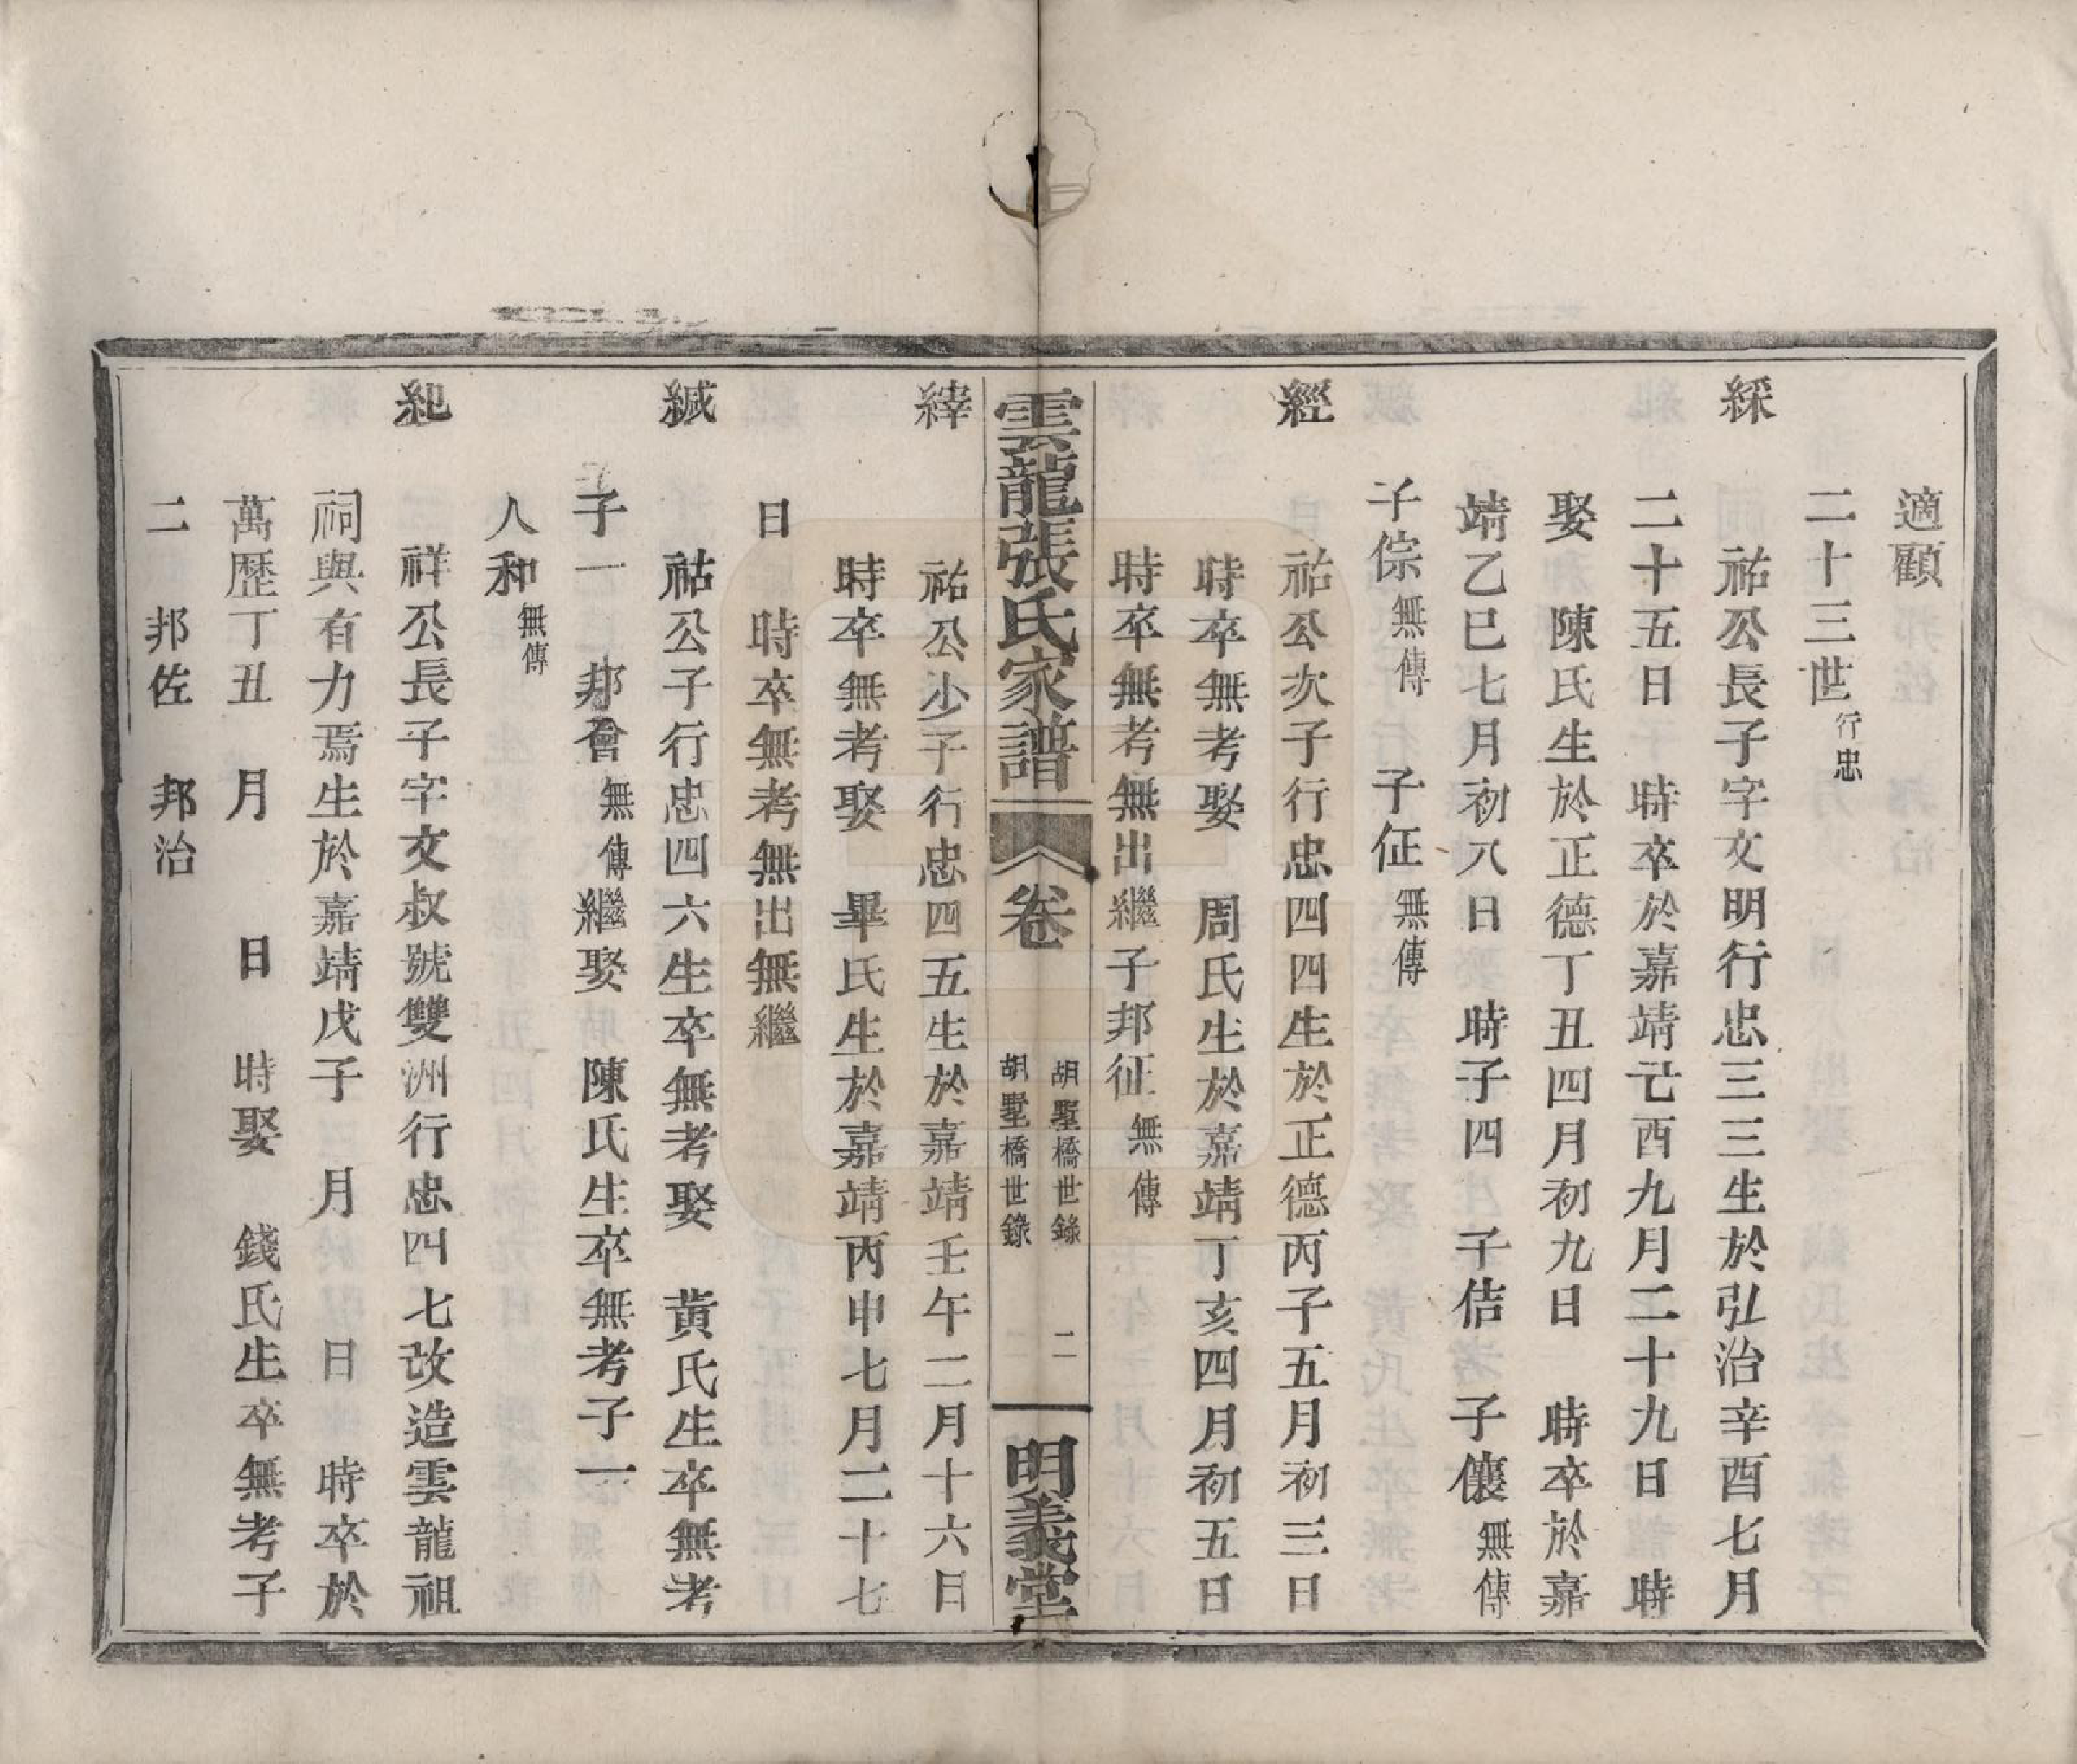 適顧
二十三世行忠
綵　祐公長子字文明行忠三三生於弘治辛酉七月
二十五日　時卒於嘉靖己酉九月二十九日　時
娶　陳氏生於正德丁丑四月初九日　時卒於嘉
靖乙巳七月初八日　時子四　子佶　子儴無傳
子倧無傳　子佂無傳
經　祐公次子行忠四四生於正德丙子五月初三日
時卒無考娶　周氏生於嘉靖丁亥四月初五日
時卒無考無出繼子邦征無傳
雲龍張氏家譜　卷　胡墅橋世錄　二　明義堂
胡墅橋世錄　二
緯　祐公少子行忠四五生於嘉靖壬午二月十六日
時卒無考娶　畢氏生於嘉靖丙申七月二十七
日　時卒無考無出無繼
緎　祜公子行忠四六生卒無考娶　黃氏生卒無考
子一　邦會無傳繼娶　陳氏生卒無考子一
人和無傳
紦　祥公長子字文叔號雙洲行忠四七改造雲龍祖
祠與有力焉生於嘉靖戊子　月　日　時卒於
萬歷丁丑　月　日　時娶　錢氏生卒無考子
二　邦佐　邦治